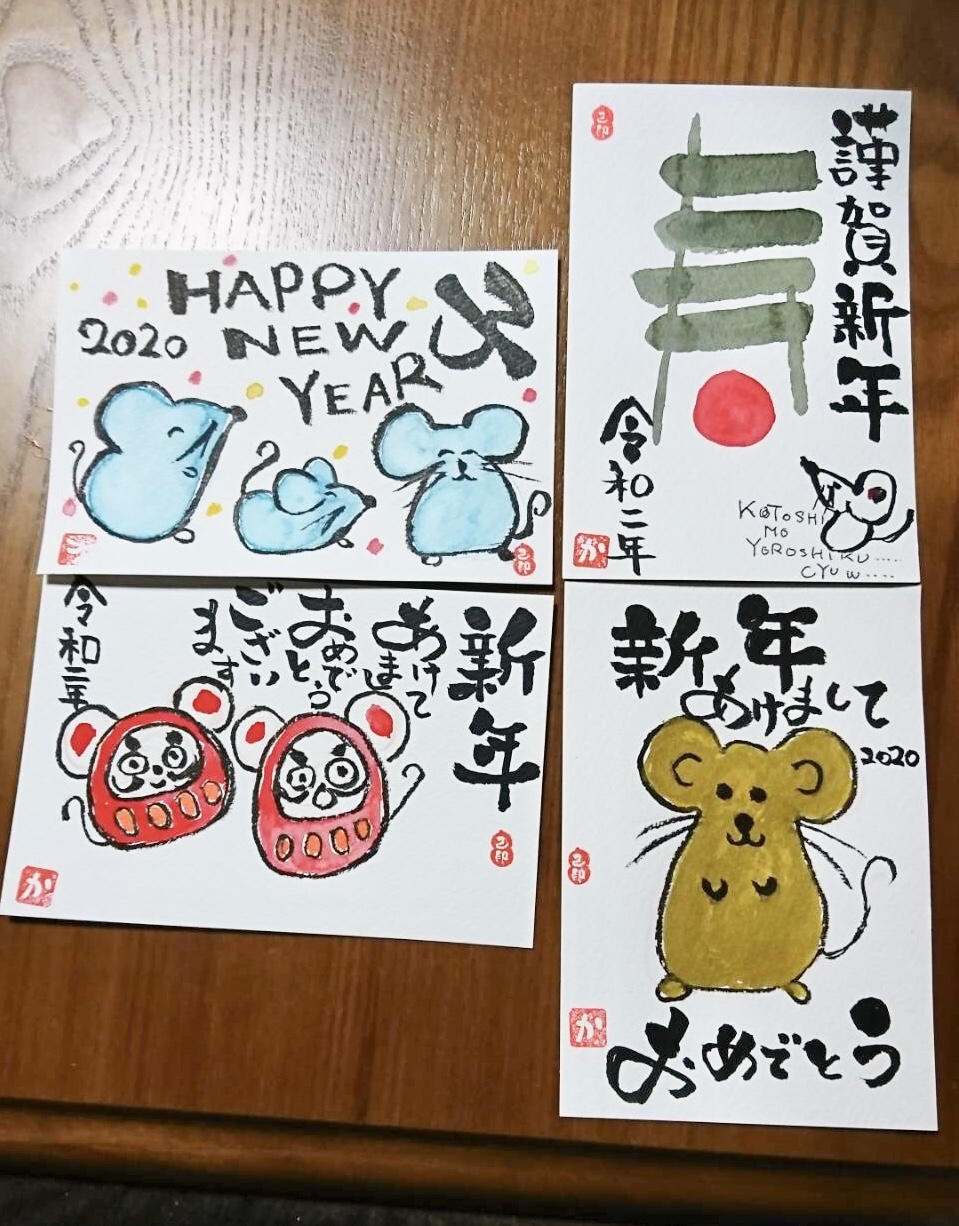 HAPPY
2020 NEW
YEAR
子
謹賀新年
令和二年
KOTOSHI
MO
YOROSHIKU.....
CYUU....
か
新年
あけまして
おめでとう
ござい
ます
令和二年
か
新年
あけまして
2020
おめでとう
か